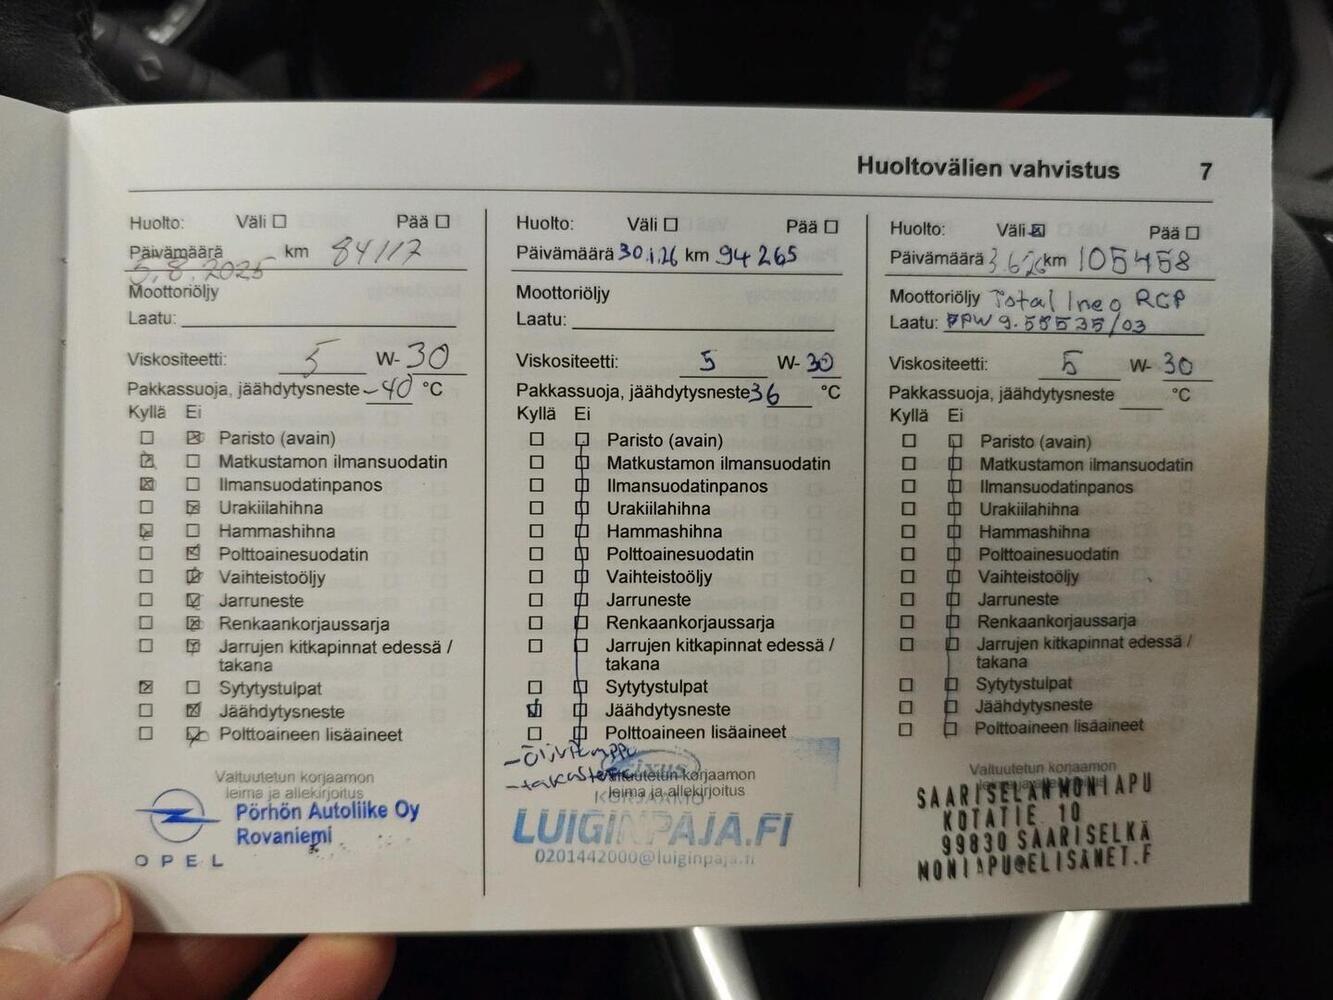 Huoltovälien vahvistus 7
Huolto: Väli Pää
Päivämäärä 5.8.2025 km 84117
Moottoriöljy
Laatu:
Viskositeetti: 5 W- 30
Pakkassuoja, jäähdytysneste -40 °C
Kyllä Ei
Paristo (avain)
Matkustamon ilmansuodatin
Ilmansuodatinpanos
Urakiilahihna
Hammashihna
Polttoainesuodatin
Vaihteistoöljy
Jarruneste
Renkaankorjaussarja
Jarrujen kitkapinnat edessä /
takana
Sytytystulpat
Jäähdytysneste
Polttoaineen lisäaineet
Valtuutetun korjaamon
leima ja allekirjoitus
Pörhön Autoliike Oy
Rovaniemi
OPEL
Huolto: Väli Pää
Päivämäärä 30.1.26 km 94265
Moottoriöljy
Laatu:
Viskositeetti: 5 W- 30
Pakkassuoja, jäähdytysneste 36 °C
Kyllä Ei
Paristo (avain)
Matkustamon ilmansuodatin
Ilmansuodatinpanos
Urakiilahihna
Hammashihna
Polttoainesuodatin
Vaihteistoöljy
Jarruneste
Renkaankorjaussarja
Jarrujen kitkapinnat edessä /
takana
Sytytystulpat
Jäähdytysneste
Polttoaineen lisäaineet
Valtuutetun korjaamon
leima ja allekirjoitus
KORJAAMO
LUIGINPAJA.FI
0201442000@luiginpaja.fi
Huolto: Väli Pää
Päivämäärä 3.6.26 km 105458
Moottoriöljy Total Ineo RCP
Laatu: 9.55535/03
Viskositeetti: 5 W- 30
Pakkassuoja, jäähdytysneste °C
Kyllä Ei
Paristo (avain)
Matkustamon ilmansuodatin
Ilmansuodatinpanos
Urakiilahihna
Hammashihna
Polttoainesuodatin
Vaihteistoöljy
Jarruneste
Renkaankorjaussarja
Jarrujen kitkapinnat edessä /
takana
Sytytystulpat
Jäähdytysneste
Polttoaineen lisäaineet
Valtuutetun korjaamon
leima ja allekirjoitus
SAARISELÄN MONIAPU
KOTATIE 10
99830 SAARISELKÄ
MONIAPU@ELISANET.F